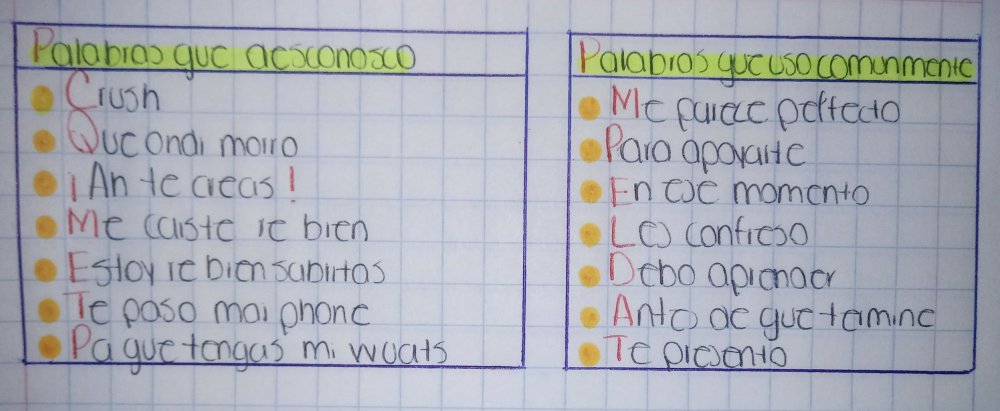 Palabras que desconosco
Crush
Que ondi morro
¡An te creas!
Me caiste re bien
Estoy re bien sabritas
Te paso mai phone
Pa que tengas mi wuats
Palabras que uso comunmente
Me parece perfecto
Para apoyarte
En ese momento
Les confieso
Debo aprender
Antes de que termine
Te presento